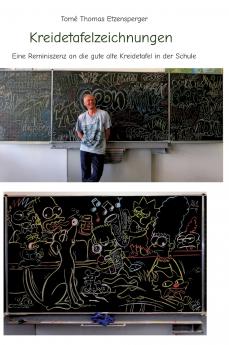 Tomê Thomas Etzensperger
Kreidetafelzeichnungen
Eine Reminiszenz an die gute alte Kreidetafel in der Schule